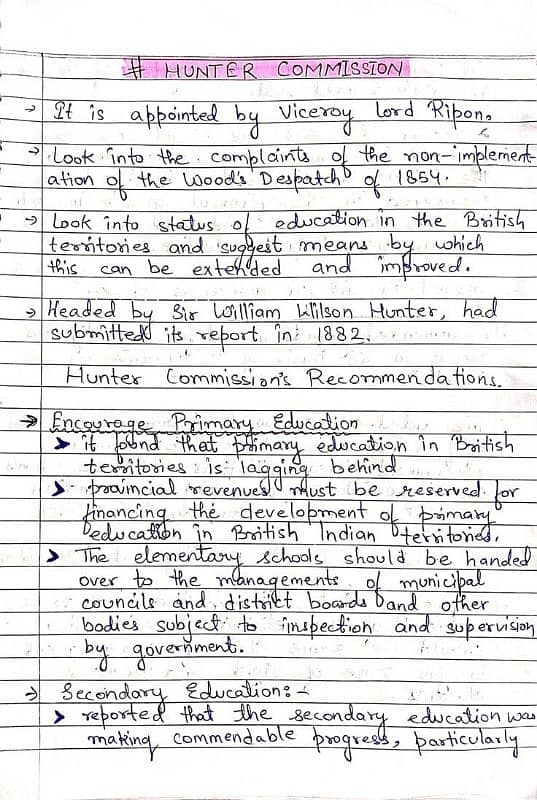 # HUNTER COMMISSION
→ It is appointed by Viceroy Lord Ripon.
→ Look into the complaints of the non-implement-
ation of the Wood's Despatch of 1854.
→ Look into status of education in the British
territories and suggest means by which
this can be extended and improved.
→ Headed by Sir William Wilson Hunter, had
submitted its report in 1882.
Hunter Commission's Recommendations.
→ Encourage Primary Education
➤ it found that primary education in British
territories is lagging behind
➤ provincial revenues must be reserved for
financing the development of primary
education in British Indian territories.
➤ The elementary schools should be handed
over to the managements of municipal
councils and district boards and other
bodies subject to inspection and supervision
by government.
→ Secondary Education:-
➤ reported that the secondary education was
making commendable progress, particularly